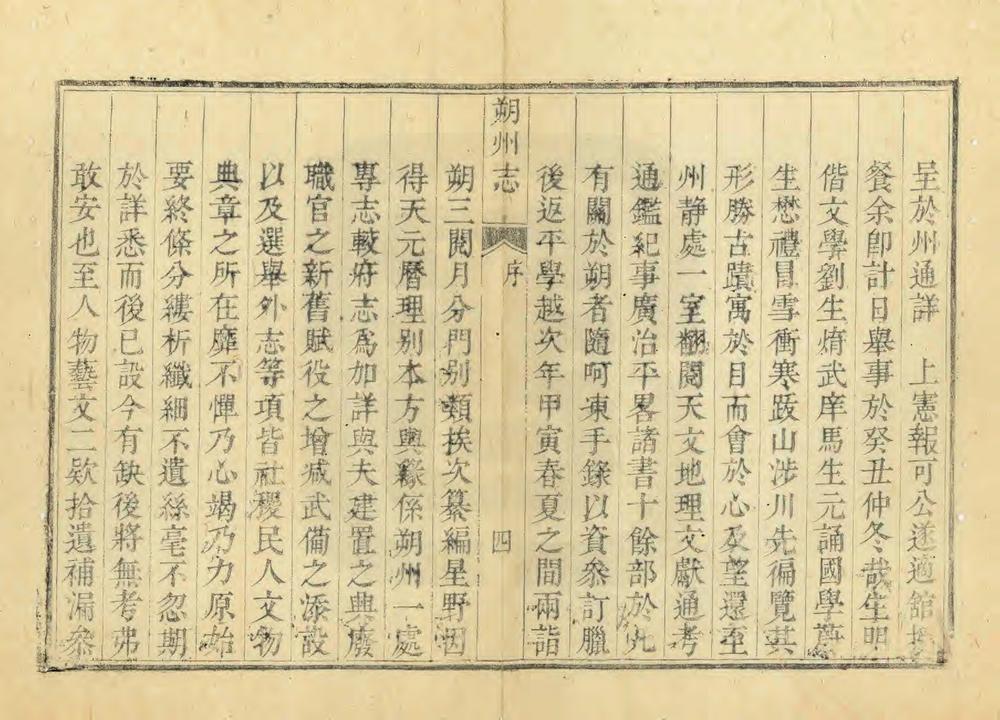 呈於州通詳　上憲報可公遂適舘
餐余即計日舉事於癸丑仲冬哉生明
偕文學劉生焴武庠馬生元誦國學
生懋禮冒雪衝寒跋山涉川先徧覽其
形勝古蹟寓於目而會於心及望還至
州静處一室翻閱天文地理文獻通考
通鑑紀事廣治平畧諸書十餘部於凡
有關於朔者隨呵凍手錄以資叅訂臘
後返平學越次年甲寅春夏之間兩詣
朔州志
序
四
朔三閱月分門别類挨次纂編星野因
得天元曆理别本方輿緣係朔州一處
專志較府志爲加詳與夫建置之興廢
職官之新舊賦役之增减武偹之添設
以及選舉外志等項皆社稷民人文物
典章之所在靡不憚乃心竭乃力原始
要終條分縷析纖細不遺絲毫不忽期
於詳悉而後已設今有缺後將無考弗
敢安也至人物藝文二欵拾遺補漏叅